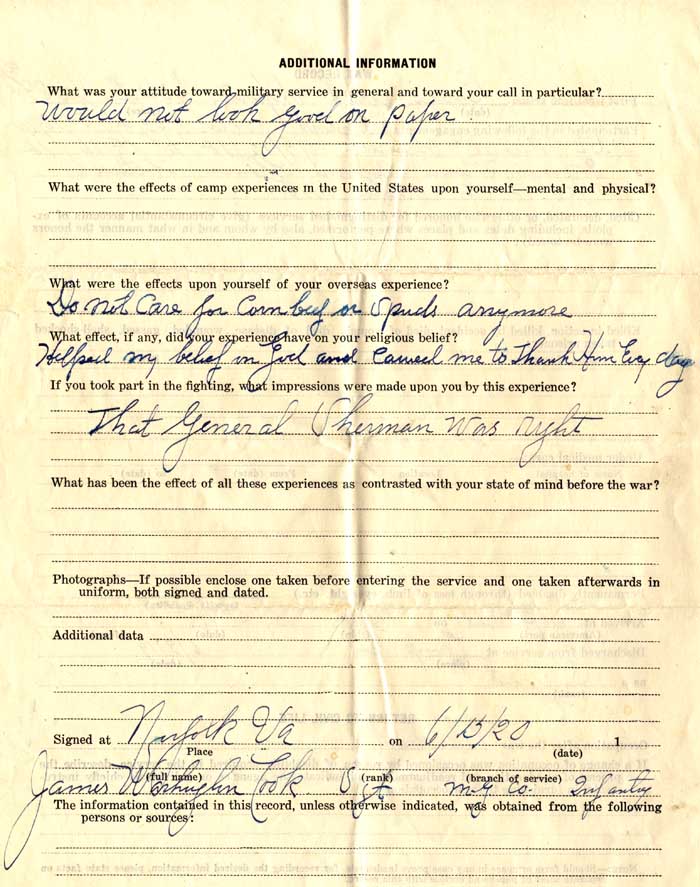 ADDITIONAL INFORMATION
What was your attitude toward military service in general and toward your call in particular?
Would not look good on paper
What were the effects of camp experiences in the United States upon yourself—mental and physical?
What were the effects upon yourself of your overseas experience?
Do not Care for Corn beef or Spuds anymore
What effect, if any, did your experience have on your religious belief?
Helped my belief in God and Caused me to Thank Him Every day
If you took part in the fighting, what impressions were made upon you by this experience?
That General Sherman was right
What has been the effect of all these experiences as contrasted with your state of mind before the war?
Photographs—If possible enclose one taken before entering the service and one taken afterwards in
uniform, both signed and dated.
Additional data
Signed at Norfolk Va on 6/15/20 1
Place (date)
(full name) (rank) (branch of service)
James Cook Sgt M.G. Co. Infantry
The information contained in this record, unless otherwise indicated, was obtained from the following
persons or sources: